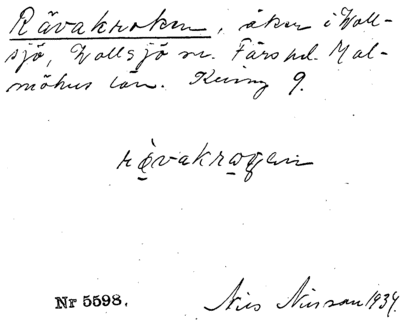 Rävakroken, åker i Voll-
sjö, Vollsjö sn. Färs hd. Mal-
möhus län. Kung 9.
rävakrogen
Nr 5598.
Nils Nilsson 1934.